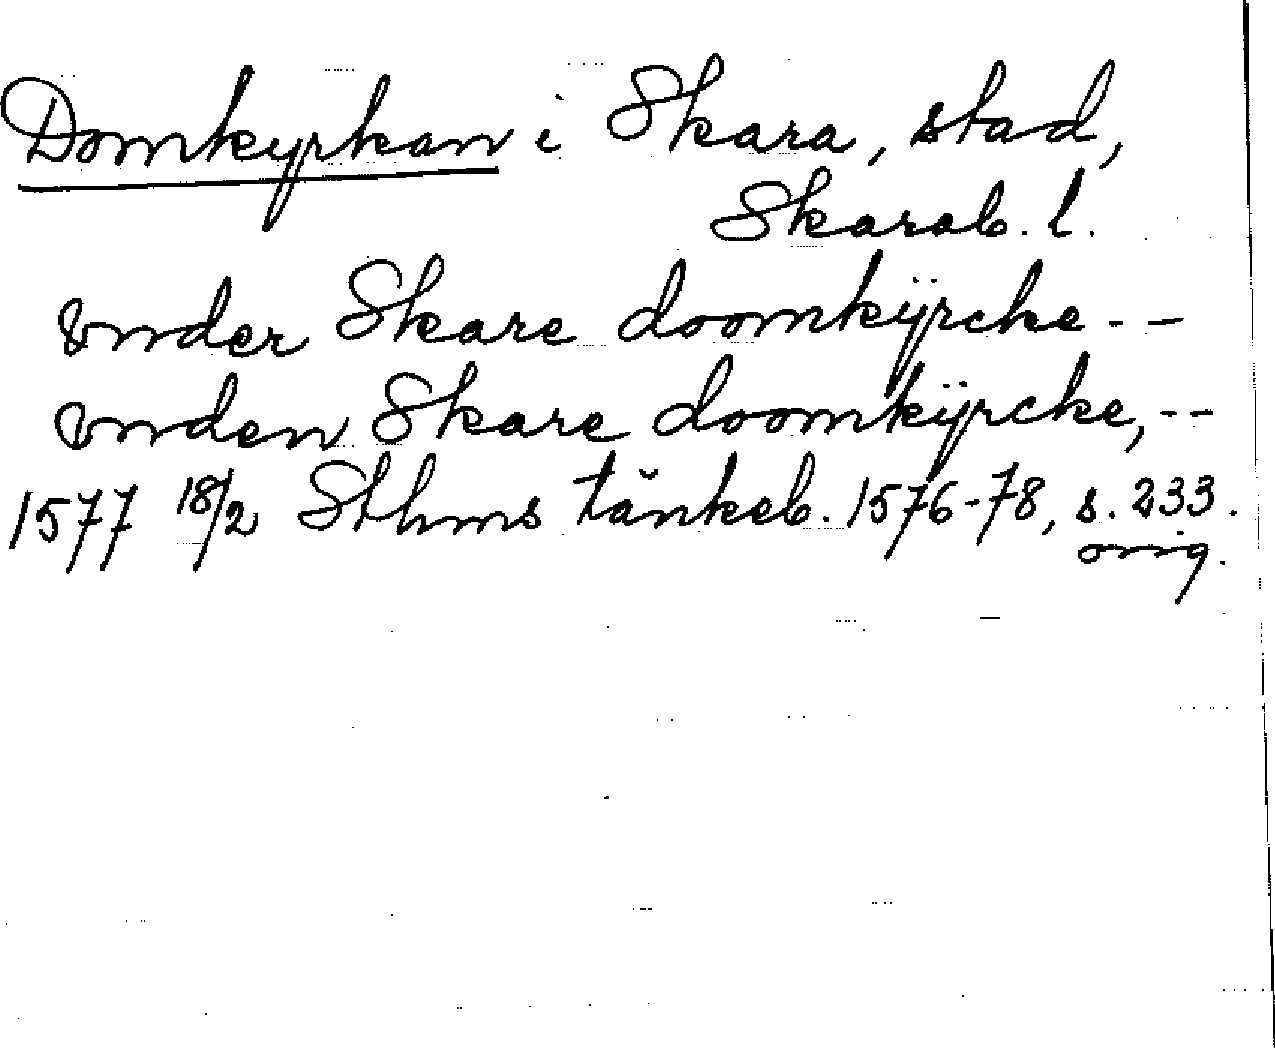 Domkyrkan i Skara, stad,
Skarab. l.
vnder Skare doomkÿrcke - -
vnden Skare doomkÿrcke, - -
1577 18/2 Sthms tänkeb. 1576-78, s. 233.
orig.